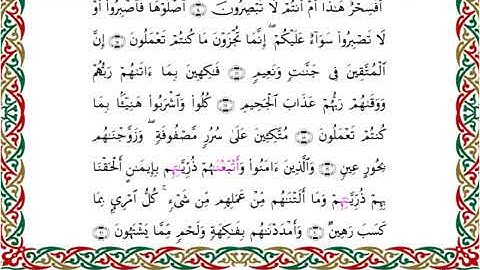 أَفَسِحْرٌ هَٰذَآ أَمْ أَنتُمْ لَا تُبْصِرُونَ ٱصْلَوْهَا فَٱصْبِرُوٓا۟ أَوْ
لَا تَصْبِرُوا۟ سَوَآءٌ عَلَيْكُمْ ۖ إِنَّمَا تُجْزَوْنَ مَا كُنتُمْ تَعْمَلُونَ إِنَّ
ٱلْمُتَّقِينَ فِى جَنَّٰتٍ وَنَعِيمٍ فَٰكِهِينَ بِمَآ ءَاتَىٰهُمْ رَبُّهُمْ
وَوَقَىٰهُمْ رَبُّهُمْ عَذَابَ ٱلْجَحِيمِ كُلُوا۟ وَٱشْرَبُوا۟ هَنِيٓـًٔۢا بِمَا
كُنتُمْ تَعْمَلُونَ مُتَّكِـِٔينَ عَلَىٰ سُرُرٍ مَّصْفُوفَةٍ ۖ وَزَوَّجْنَٰهُم
بِحُورٍ عِينٍ وَٱلَّذِينَ ءَامَنُوا۟ وَأَتْبَعْنَٰهُمْ ذُرِّيَّٰتِهِم بِإِيمَٰنٍ أَلْحَقْنَا
بِهِمْ ذُرِّيَّٰتِهِمْ وَمَآ أَلَتْنَٰهُم مِّنْ عَمَلِهِم مِّن شَىْءٍ ۚ كُلُّ ٱمْرِئٍۭ بِمَا
كَسَبَ رَهِينٌ وَأَمْدَدْنَٰهُم بِفَٰكِهَةٍ وَلَحْمٍ مِّمَّا يَشْتَهُونَ